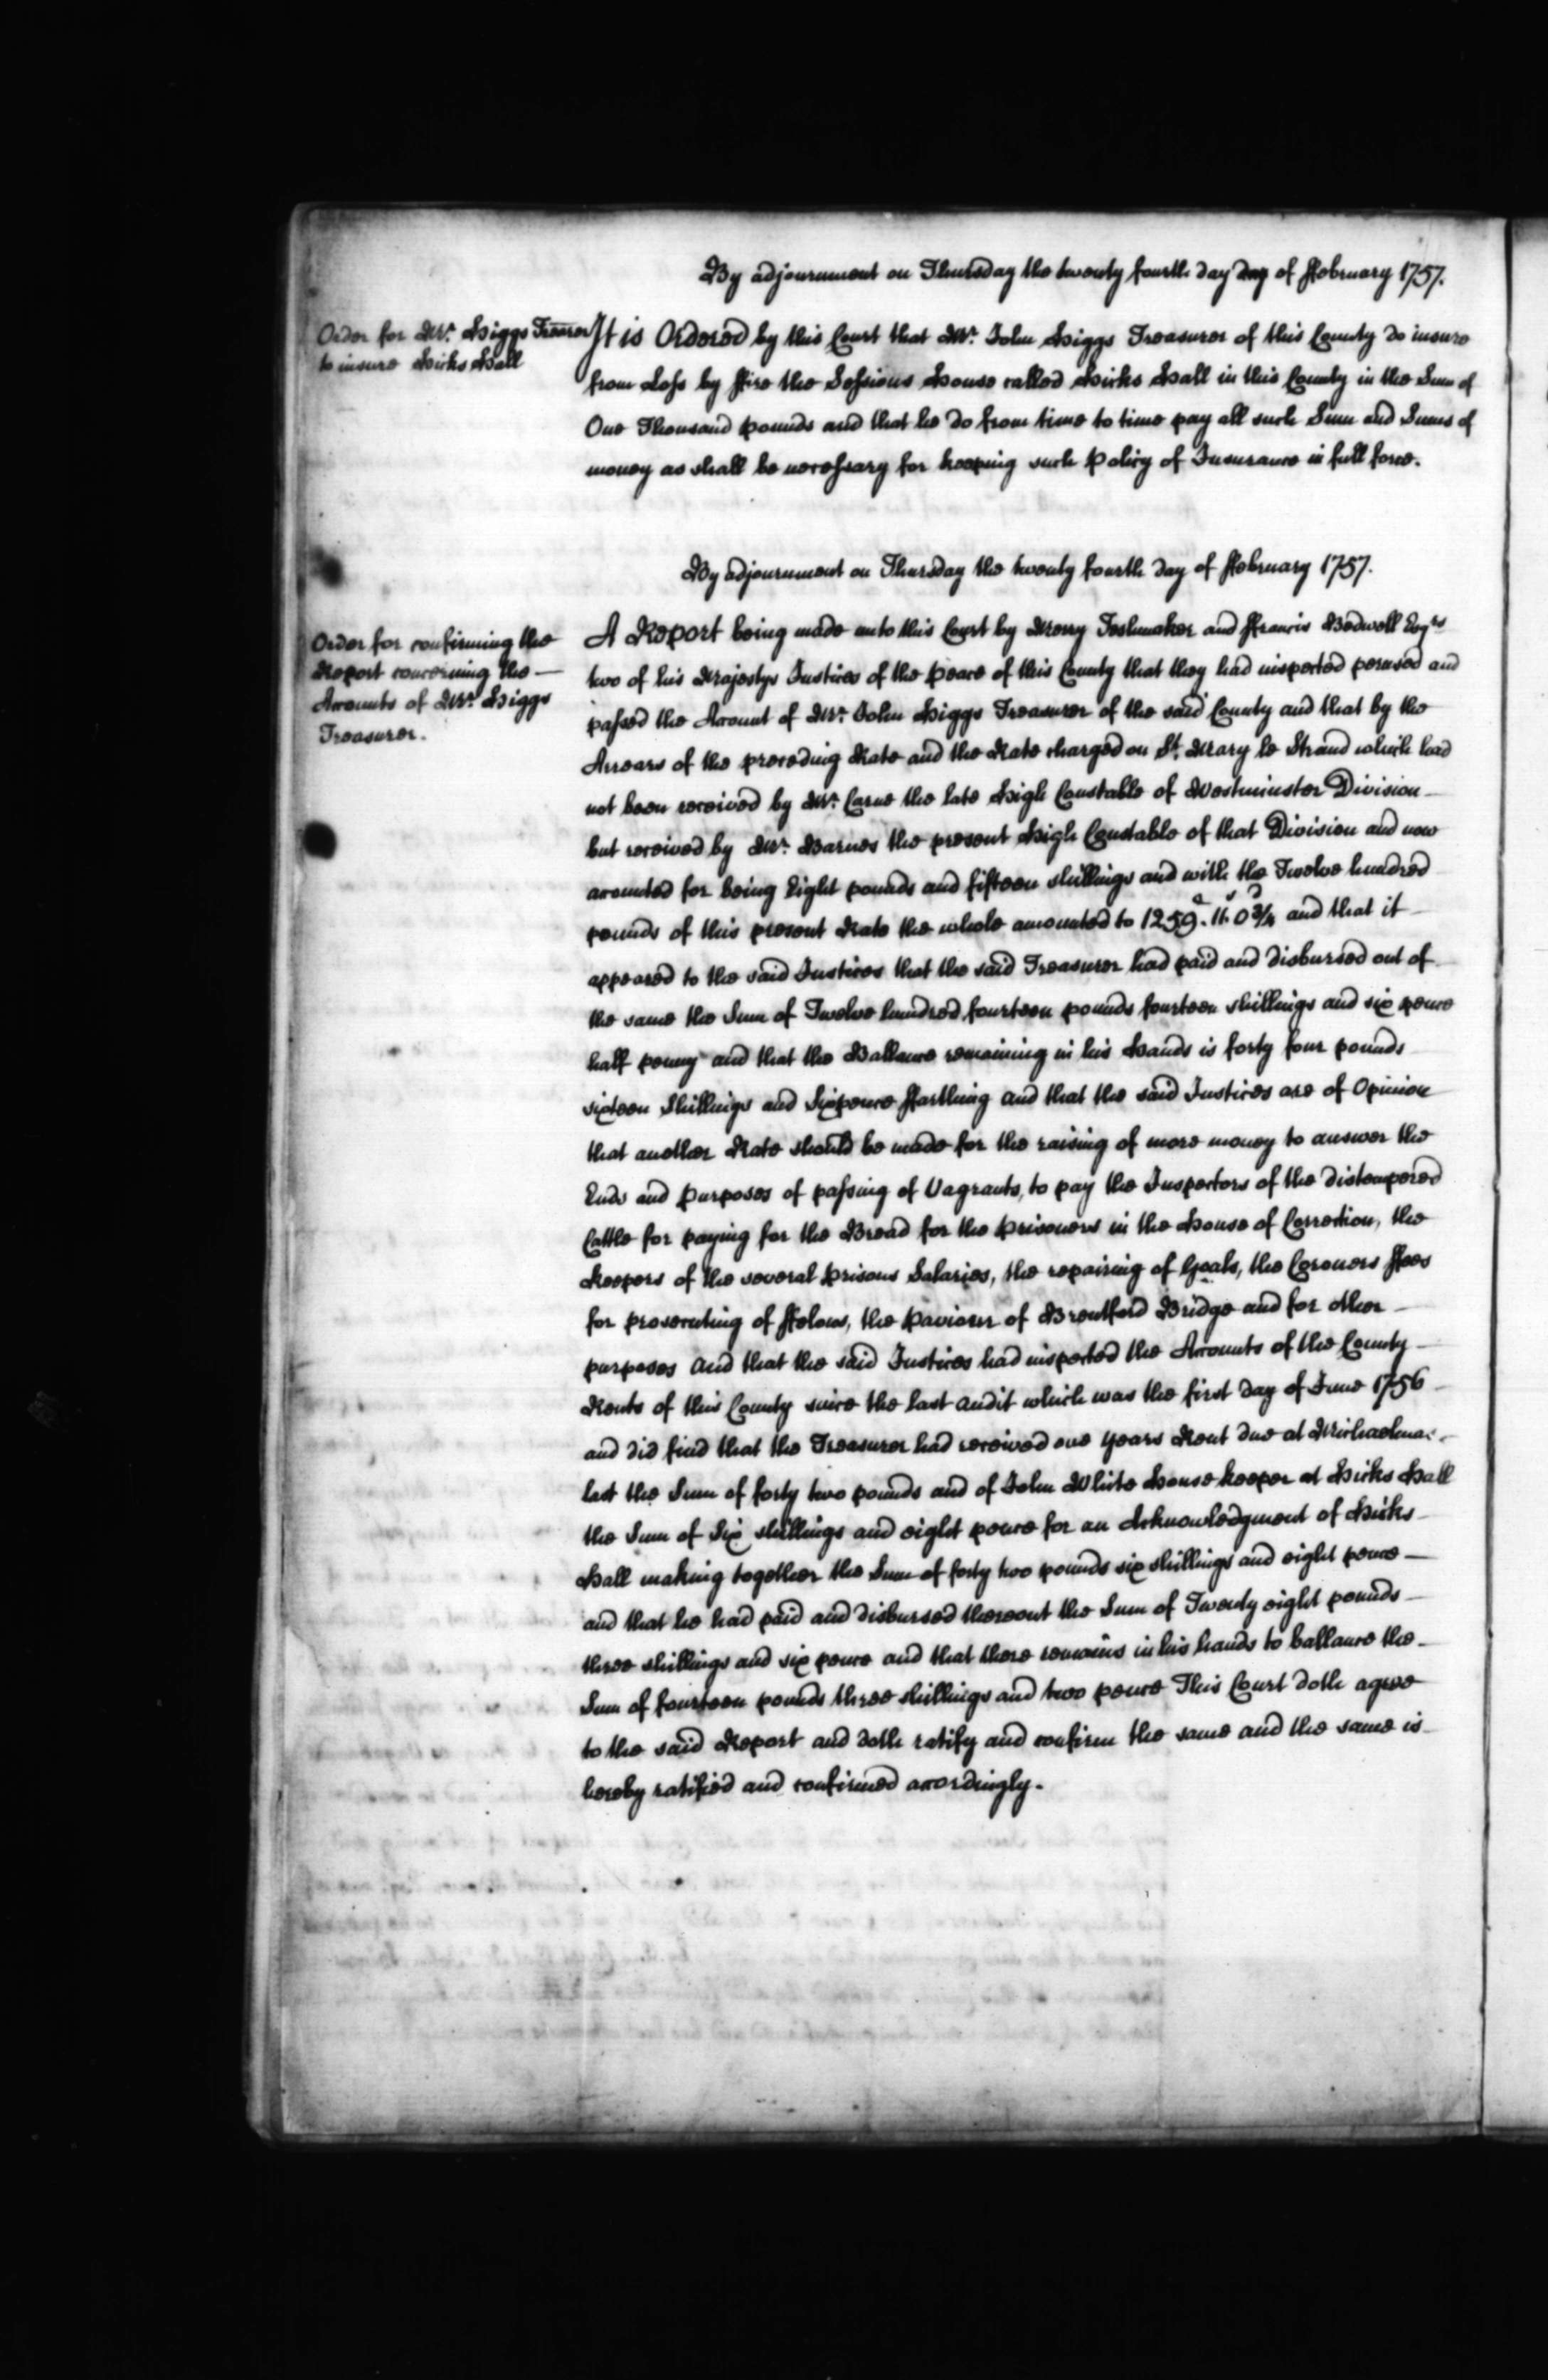 By adjournment on Thursday the twenty fourth day day of ffebruary 1757.
Order for Mr. Higgs Treasurer
to insure Hicks Hall
It is Ordered by this Court that Mr. John Higgs Treasurer of this County do insure
from Loss by ffire the Sessions House called Hicks Hall in this County in the Sum of
One Thousand pounds and that he do from time to time pay all such Sum and Sums of
money as shall be necessary for keeping such Policy of Insurance in full force.
By adjournment on Thursday the twenty fourth day of ffebruary 1757.
Order for confirming the
Report concerning the
Accounts of Mr. Higgs
Treasurer.
A Report being made unto this Court by Merry Teshmaker and ffrancis Bedwell Esqrs
two of his Majestys Justices of the Peace of this County that they had inspected perused and
passed the Account of Mr. John Higgs Treasurer of the said County and that by the
Arrears of the preceding Rate and the Rate charged on St. Mary le Strand which had
not been received by Mr. Carne the late High Constable of Westminster Division
but received by Mr. Barnes the present High Constable of that Division and now
accounted for being Eight pounds and fifteen shillings and with the Twelve hundred
pounds of this present Rate the whole amounted to 1259. 11. 0¾ and that it
appeared to the said Justices that the said Treasurer had paid and disbursed out of
the same the Sum of Twelve hundred fourteen pounds fourteen shillings and six pence
half penny and that the Ballance remaining in his Hands is forty four pounds
sixteen Shillings and Sixpence ffarthing and that the said Justices are of Opinion
that another Rate should be made for the raising of more money to answer the
Ends and Purposes of passing of Vagrants, to pay the Inspectors of the distempered
Cattle for paying for the Bread for the Prisoners in the House of Correction, the
Keepers of the several Prisons Salaries, the repairing of Goals, the Coroners ffees
for prosecuting of ffelons, the Paviour of Brentford Bridge and for other
purposes And that the said Justices had inspected the Accounts of the County
Rents of this County since the last Audit which was the first day of June 1756
and did find that the Treasurer had received one years Rent due at Michaelmas
last the Sum of forty two pounds and of John White House keeper at Hicks Hall
the Sum of Six shillings and eight pence for an Acknowledgment of Hicks
Hall making together the Sum of forty two pounds six shillings and eight pence
and that he had paid and disbursed thereout the Sum of Twenty eight pounds
three shillings and six pence and that there remains in his hands to ballance the
Sum of fourteen pounds three shillings and two pence This Court doth agree
to the said Report and doth ratify and confirm the same and the same is
hereby ratified and confirmed accordingly.